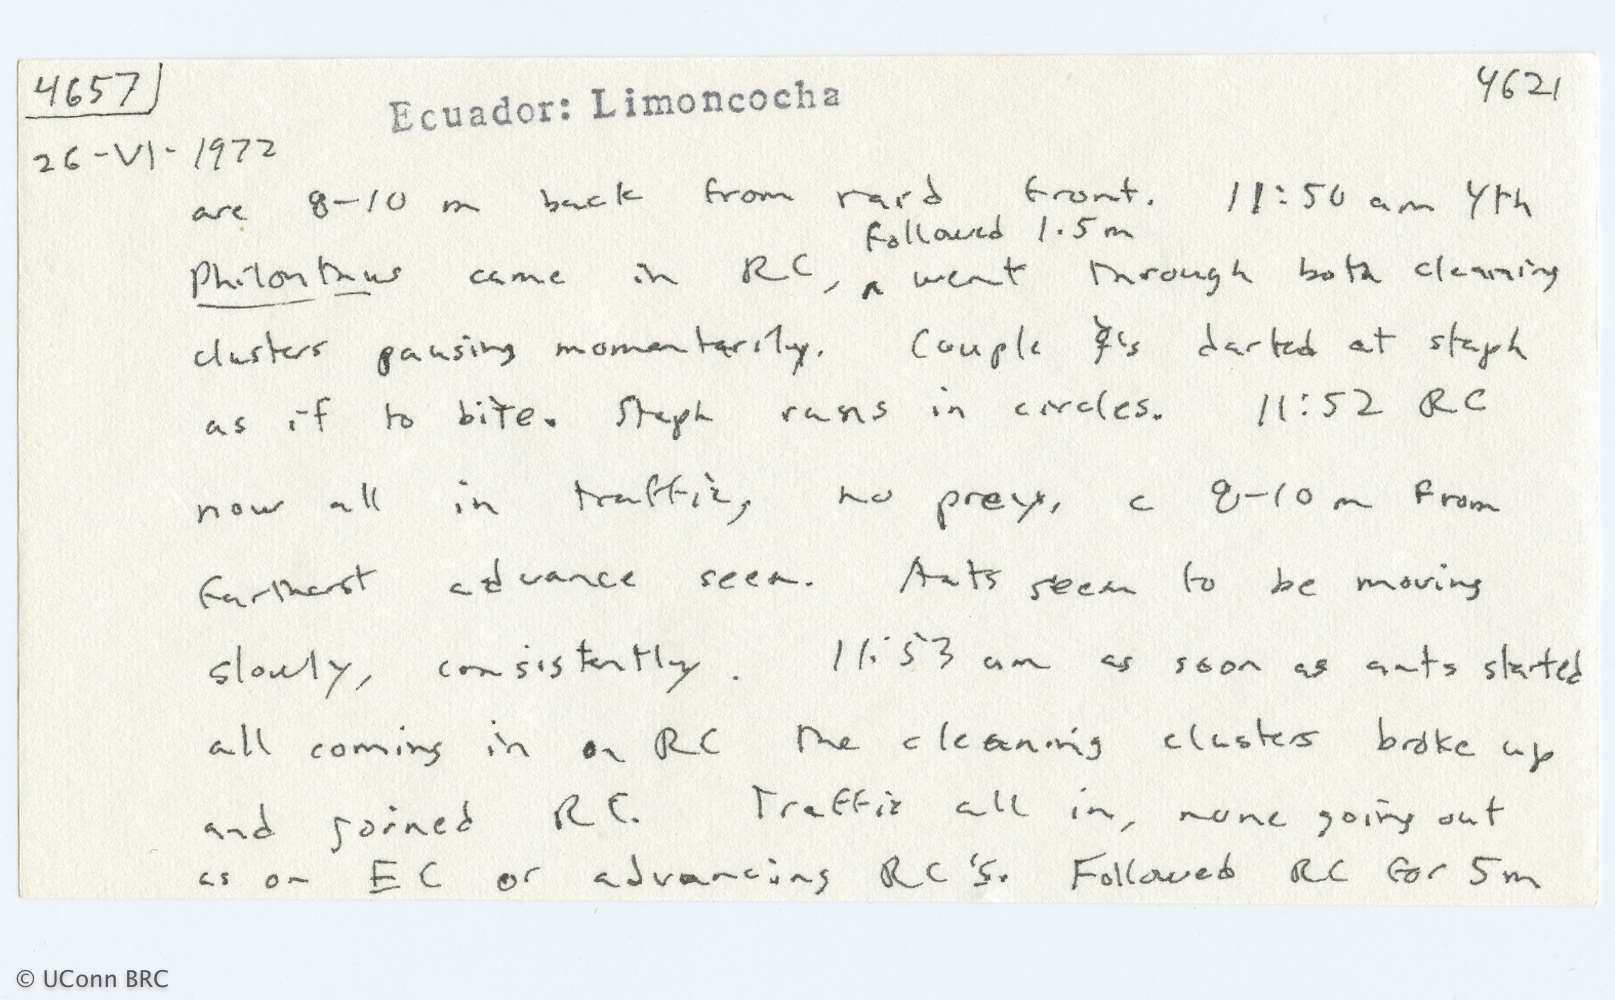 4657
Ecuador: Limoncocha
4621
26-VI-1972
are 8-10 m back from raid front. 11:50 am 4th
followed 1.5 m
Philonthus came in RC, ^ went through both cleaning
clusters pausing momentarily. Couple ☿'s darted at staph
as if to bite. Staph runs in circles. 11:52 RC
now all in traffic, no prey, c 8-10 m from
farthest advance seen. Ants seem to be moving
slowly, consistently. 11:53 am as soon as ants started
all coming in on RC the cleaning clusters broke up
and joined RC. Traffic all in, none going out
as on EC or advancing RC's. Followed RC for 5 m
© UConn BRC